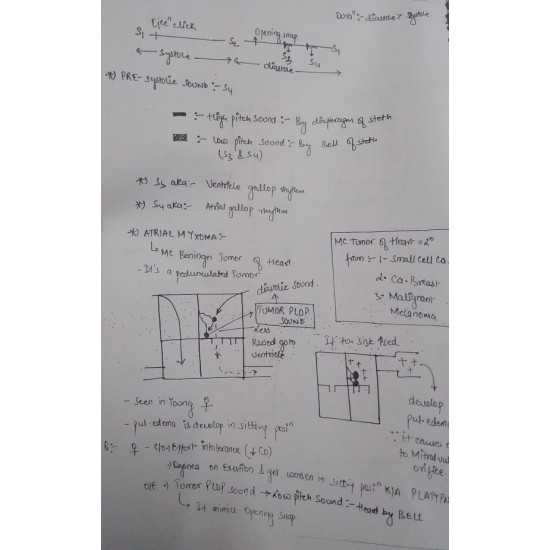 Ejecⁿ click
Durⁿ :- diastole > systole
S1
S2
Opening snap
S3
S4
S1
← Systole →
← diastole →
*) PRE-Systolic SOUND :- S4
:- High pitch sound :- By diaphragm of steth
:- Low pitch sound :- By Bell of steth
(S3 & S4)
*) S3 aka :- Ventricle gallop rhythm
*) S4 aka :- Atrial gallop rhythm
*) ATRIAL MYXOMA :-
↳ MC Beningn Tumor of Heart.
- It's a pedunculated Tumor
MC Tumor of Heart = 2°
from :- 1- Small Cell Ca.
2. Ca. Breast
3. Malignant
Melanoma
diastolic sound.
TUMOR PLOP
SOUND
Less
Blood go to
ventricle
If tu. size ↑sed
+ + + + +
+ + + +
develop
pul. edema
∵ it causes
to Mitral val
orifice.
- Seen in Young ♀
- pul. edema is develop in sitting posiⁿ
Q:- ♀ - c/o Effort intolerance (↓CO)
Dyspnea on Exertion & get worsen in sitting posiⁿ K/A PLATYP
O/E → Tumor PLOP sound → Low pitch sound :- Heard by BELL
↳ It mimics opening snap